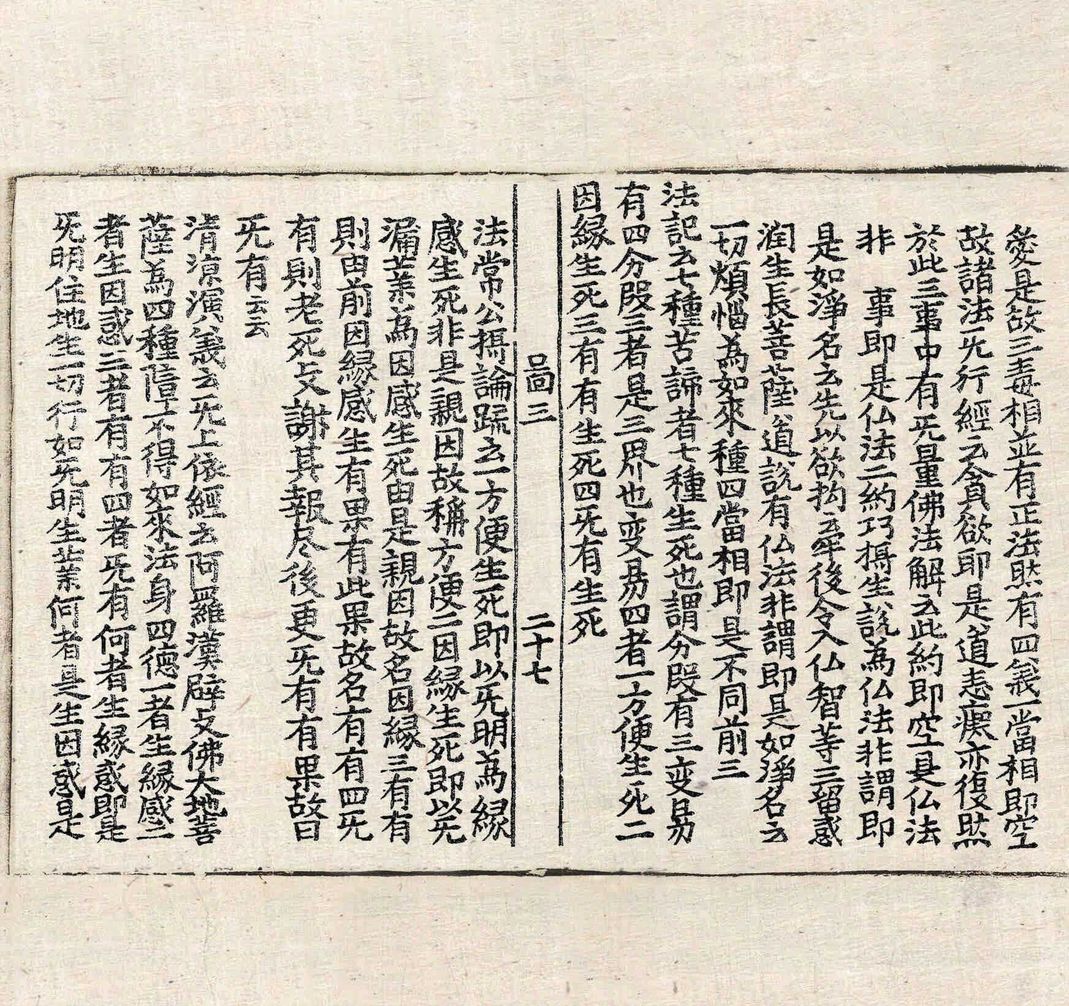 愛是故三毒相並有正法然有四義一當相即空
故諸法旡行經云貪欲即是道恚癡亦復然
於此三事中有旡量佛法解云此約即空具仏法
非　事即是仏法二約巧攝生說為仏法非謂即
是如淨名云先以欲拘牽後令入仏智等三留惑
潤生長菩薩道說有仏法非謂即是如淨名云
一切煩惱為如來種四當相即是不同前三
法記云七種苦諦者七種生死也謂分段有三变易
有四分段三者是三界也变易四者一方便生死二
因緣生死三有有生死四旡有生死
啚三　二十七
法常公攝論䟽云一方便生死即以旡明為緣
感生死非是親因故稱方便二因緣生死即以旡
漏業為因感生死由是親因故名因緣三有有
則由前因緣感生有果有此果故名有有四旡
有則老死攴謝其報尽後更旡有有果故曰
旡有云云
清涼演義云旡上依經云阿羅漢辟攴佛大地菩
薩為四種障不得如來法身四德一者生緣惑二
者生因惑三者有有四者旡有何者生緣惑即是
旡明住地生一切行如旡明生業何者是生因惑是